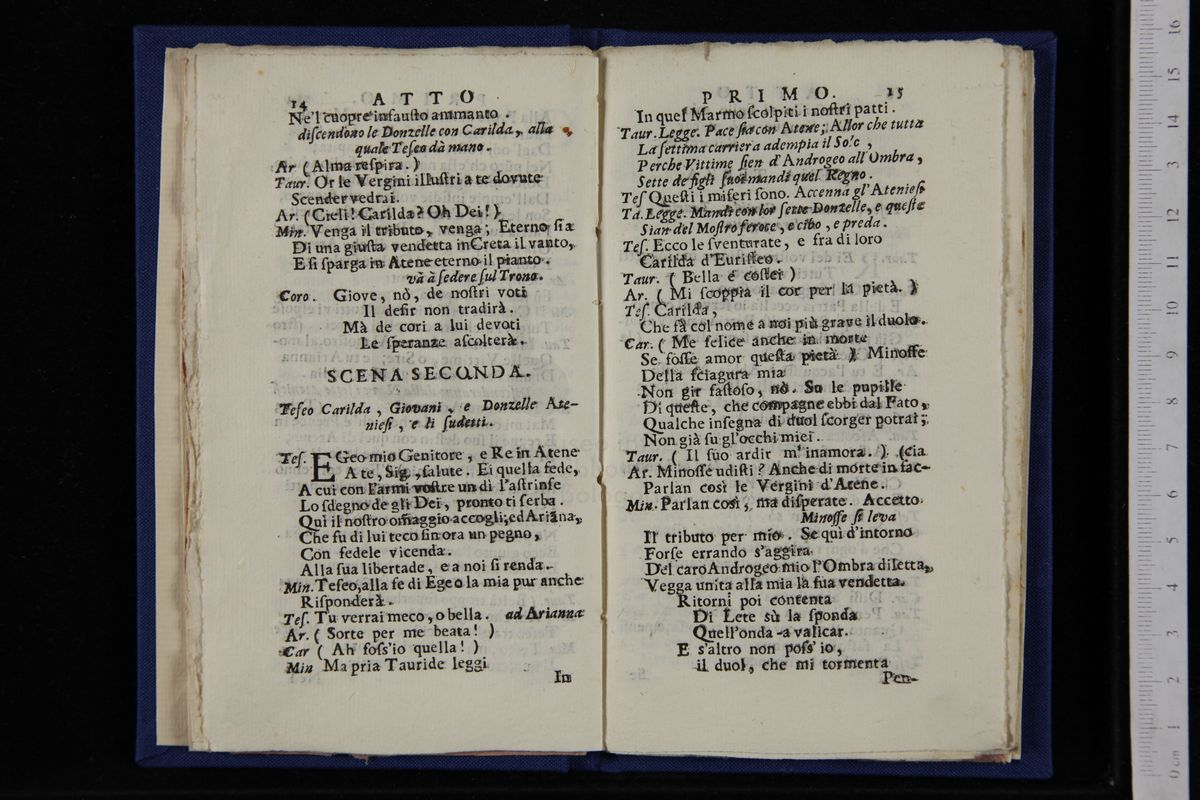 14 ATTO
Ne'l cuopre infausto ammanto.
discendono le Donzelle con Carilda, alla
quale Teseo dà mano.
Ar (Alma respira.)
Taur. Or le Vergini illustri a te dovute
Scender vedrai.
Ar. (Cieli! Carilda? Oh Dei!)
Min. Venga il tributo, venga; Eterno sia
Di una giusta vendetta in Creta il vanto,
E si sparga in Atene eterno il pianto.
và à sedere sul Trono.
Coro. Giove, nò, de nostri voti
Il desir non tradirà.
Mà de cori a lui devoti
Le speranze ascolterà.
SCENA SECONDA.
Teseo Carilda, Giovani, e Donzelle Ate-
niesi, e li sudetti.
Tes. EGeo mio Genitore, e Re in Atene
A te, Sig., salute. Ei quella fede,
A cui con l'armi vostre un dì l'astrinse
Lo sdegno de gli Dei, pronto ti serba.
Quì il nostro omaggio accogli; ed Ariana,
Che fu di lui teco sin ora un pegno,
Con fedele vicenda.
Alla sua libertade, e a noi si renda.
Min. Teseo, alla fe di Egeo la mia pur anche
Risponderà.
Tes. Tu verrai meco, o bella. ad Arianna
Ar. (Sorte per me beata!)
Car (Ah foss'io quella!)
Min Ma pria Tauride leggi
In
PRIMO. 15
In quel Marmo scolpiti i nostri patti.
Taur. Legge. Pace sia con Atene; Allor che tutta
La settima carriera adempia il Sole,
Perche Vittime sien d'Androgeo all'Ombra,
Sette de figli suoi mandi quel Regno.
Tes Questi i miseri sono. Accenna gl'Ateniesi
Ta. Legge. Mandi con lor sette Donzelle, e queste
Sian del Mostro feroce, e cibo, e preda.
Tes. Ecco le sventurate, e fra di loro
Carilda d'Euristeo.
Taur. (Bella è costei)
Ar. (Mi scoppia il cor per la pietà.)
Tes. Carilda,
Che fà col nome a noi più grave il duolo.
Car. (Me felice anche in morte
Se fosse amor questa pietà) Minosse
Della sciagura mia
Non gir fastoso, nò. Su le pupille
Di queste, che compagne ebbi dal Fato,
Qualche insegna di duol scorger potrai;
Non già su gl'occhi miei.
Taur. (Il suo ardir m'inamora.) (cia
Ar. Minosse udisti? Anche di morte in fac-
Parlan così le Vergini d'Atene.
Min. Parlan così, ma disperate. Accetto
Minosse si leva
Il tributo per mio. Se quì d'intorno
Forse errando s'aggira
Del caro Androgeo mio l'Ombra diletta,
Vegga unita alla mia la sua vendetta.
Ritorni poi contenta
Di Lete sù la sponda
Quell'onda a valicar.
E s'altro non poss'io,
il duol, che mi tormenta
Pen-
0 cm 1 2 3 4 5 6 7 8 9 10 11 12 13 14 15 16